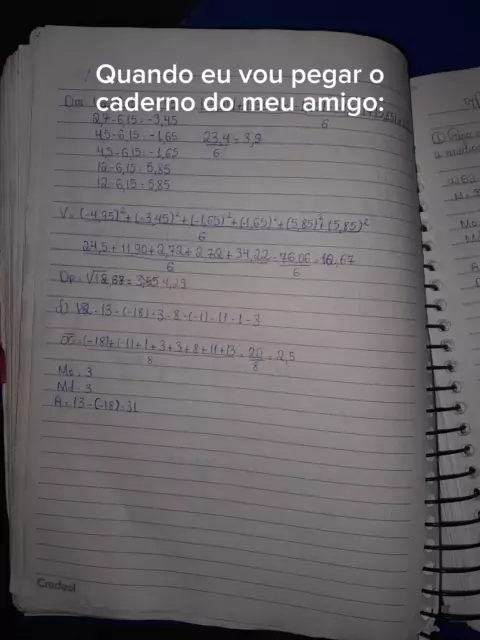 Quando eu vou pegar o
caderno do meu amigo:
Dm
6
2,7-6,15=-3,45
4,5-6,15=-1,65 23,4=3,9
4,5-6,15=-1,65 6
12-6,15=5,85
12-6,15=5,85
V=(-4,35)²+(-3,45)²+(-1,65)²+(-1,65)²+(5,85)²+(5,85)²
6
24,5+11,90+2,72+2,72+34,22=76,06=12,67
6 6
Dp=
4,29
b) 12-13-(-18)-3-8-(-1)-11-1-3
x̄=(-18)+(-1)+1+3+3+8+11+13=20=2,5
8 8
Mo=3
Md=3
A=13-(-18)=31
Credeal